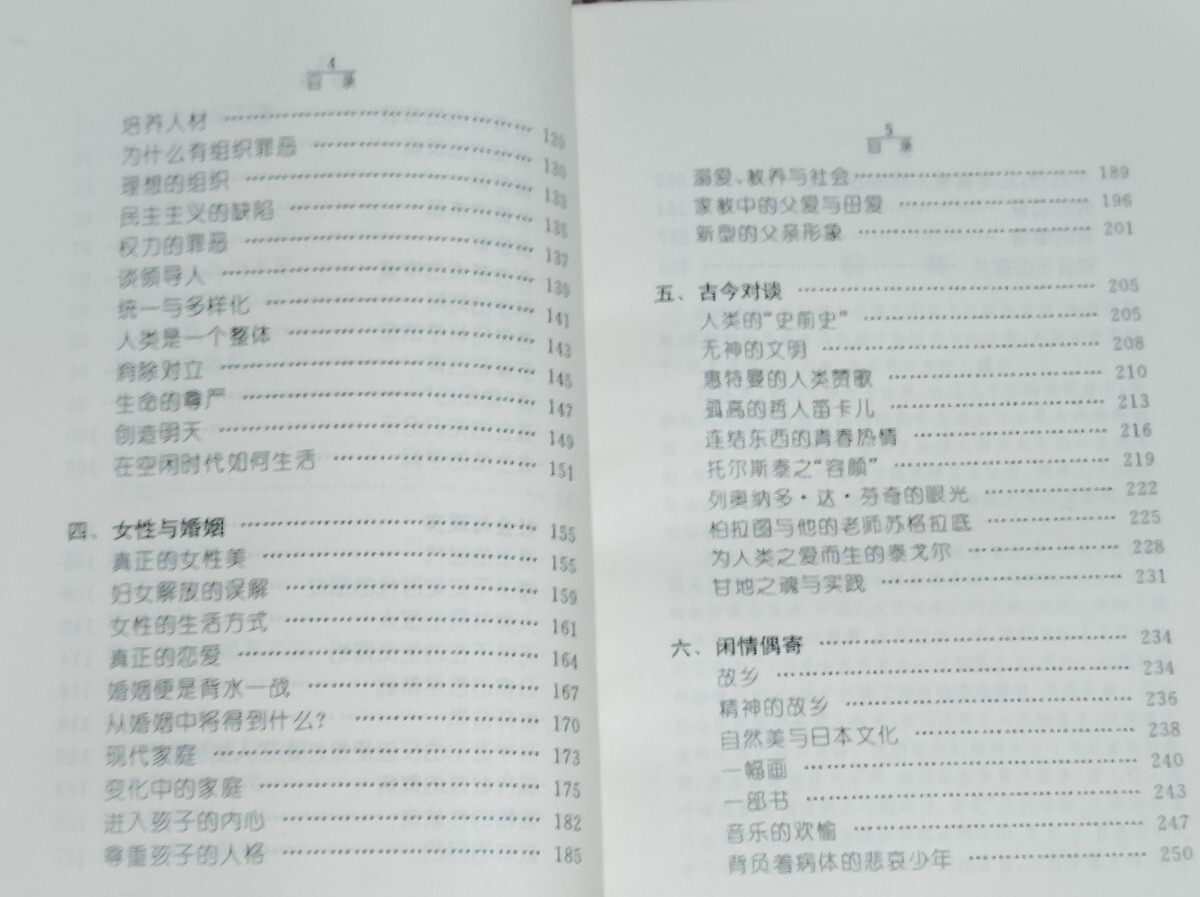 4
目 录
培养人材 129
为什么有组织罪恶 130
理想的组织 133
民主主义的缺陷 135
权力的罪恶 137
谈领导人 139
统一与多样化 141
人类是一个整体 143
消除对立 145
生命的尊严 147
创造明天 149
在空闲时代如何生活 151
四、女性与婚姻 155
真正的女性美 155
妇女解放的误解 159
女性的生活方式 161
真正的恋爱 164
婚姻便是背水一战 167
从婚姻中将得到什么? 170
现代家庭 173
变化中的家庭 175
进入孩子的内心 182
尊重孩子的人格 185
5
目 录
溺爱、教养与社会 189
家教中的父爱与母爱 196
新型的父亲形象 201
五、古今对谈 205
人类的“史前史” 205
无神的文明 208
惠特曼的人类赞歌 210
孤高的哲人笛卡儿 213
连结东西的青春热情 216
托尔斯泰之“容颜” 219
列奥纳多·达·芬奇的眼光 222
柏拉图与他的老师苏格拉底 225
为人类之爱而生的泰戈尔 228
甘地之魂与实践 231
六、闲情偶寄 234
故乡 234
精神的故乡 236
自然美与日本文化 238
一幅画 240
一部书 243
音乐的欢愉 247
背负着病体的悲哀少年 250